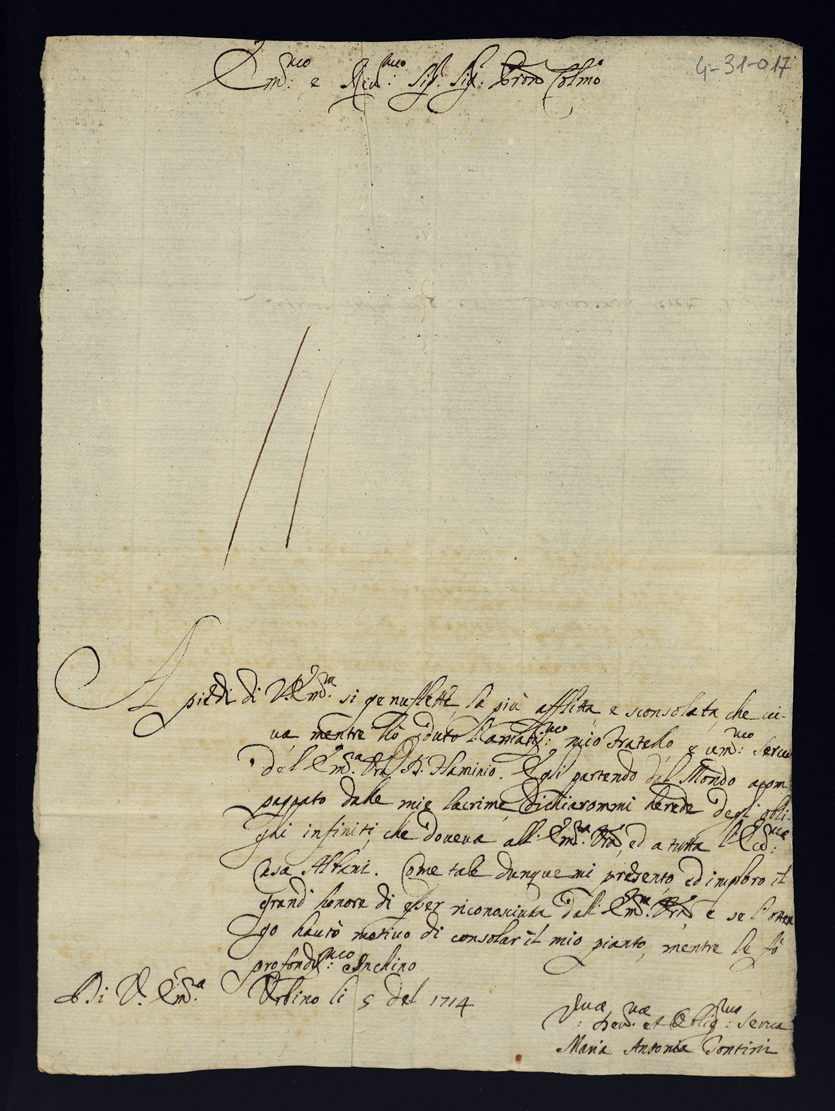 4-31-017
Em.mo e Rev.mo Sig.r Sig.r Pron Colmo
A piedi di V. Em.za si genuflette la più afflitta, e sconsolata, che vi-
va mentre hò pduto l'amatiss.mo mio Fratello e um.mo Servo
dell' Em.za Vra D. Flaminio. Egli partendo dal Mondo acom
pagnato dalle mie lacrime, dichiarommi herede degl' obli-
ghi infiniti, che doveva all' Em.za Vra, ed a tutta l'Ecc.ma
Casa Albani. Come tale dunque mi presento, ed imploro il
grand' honore di esser riconosciuta dall' Em.za Vra e se l'otten
go haurò motivo di consolar il mio pianto, mentre le fò
profondiss.mo Inchino
Di V. Em.za Urbino li 5 del 1714
Dev. et Oblig.ma Serva
Maria Antonia